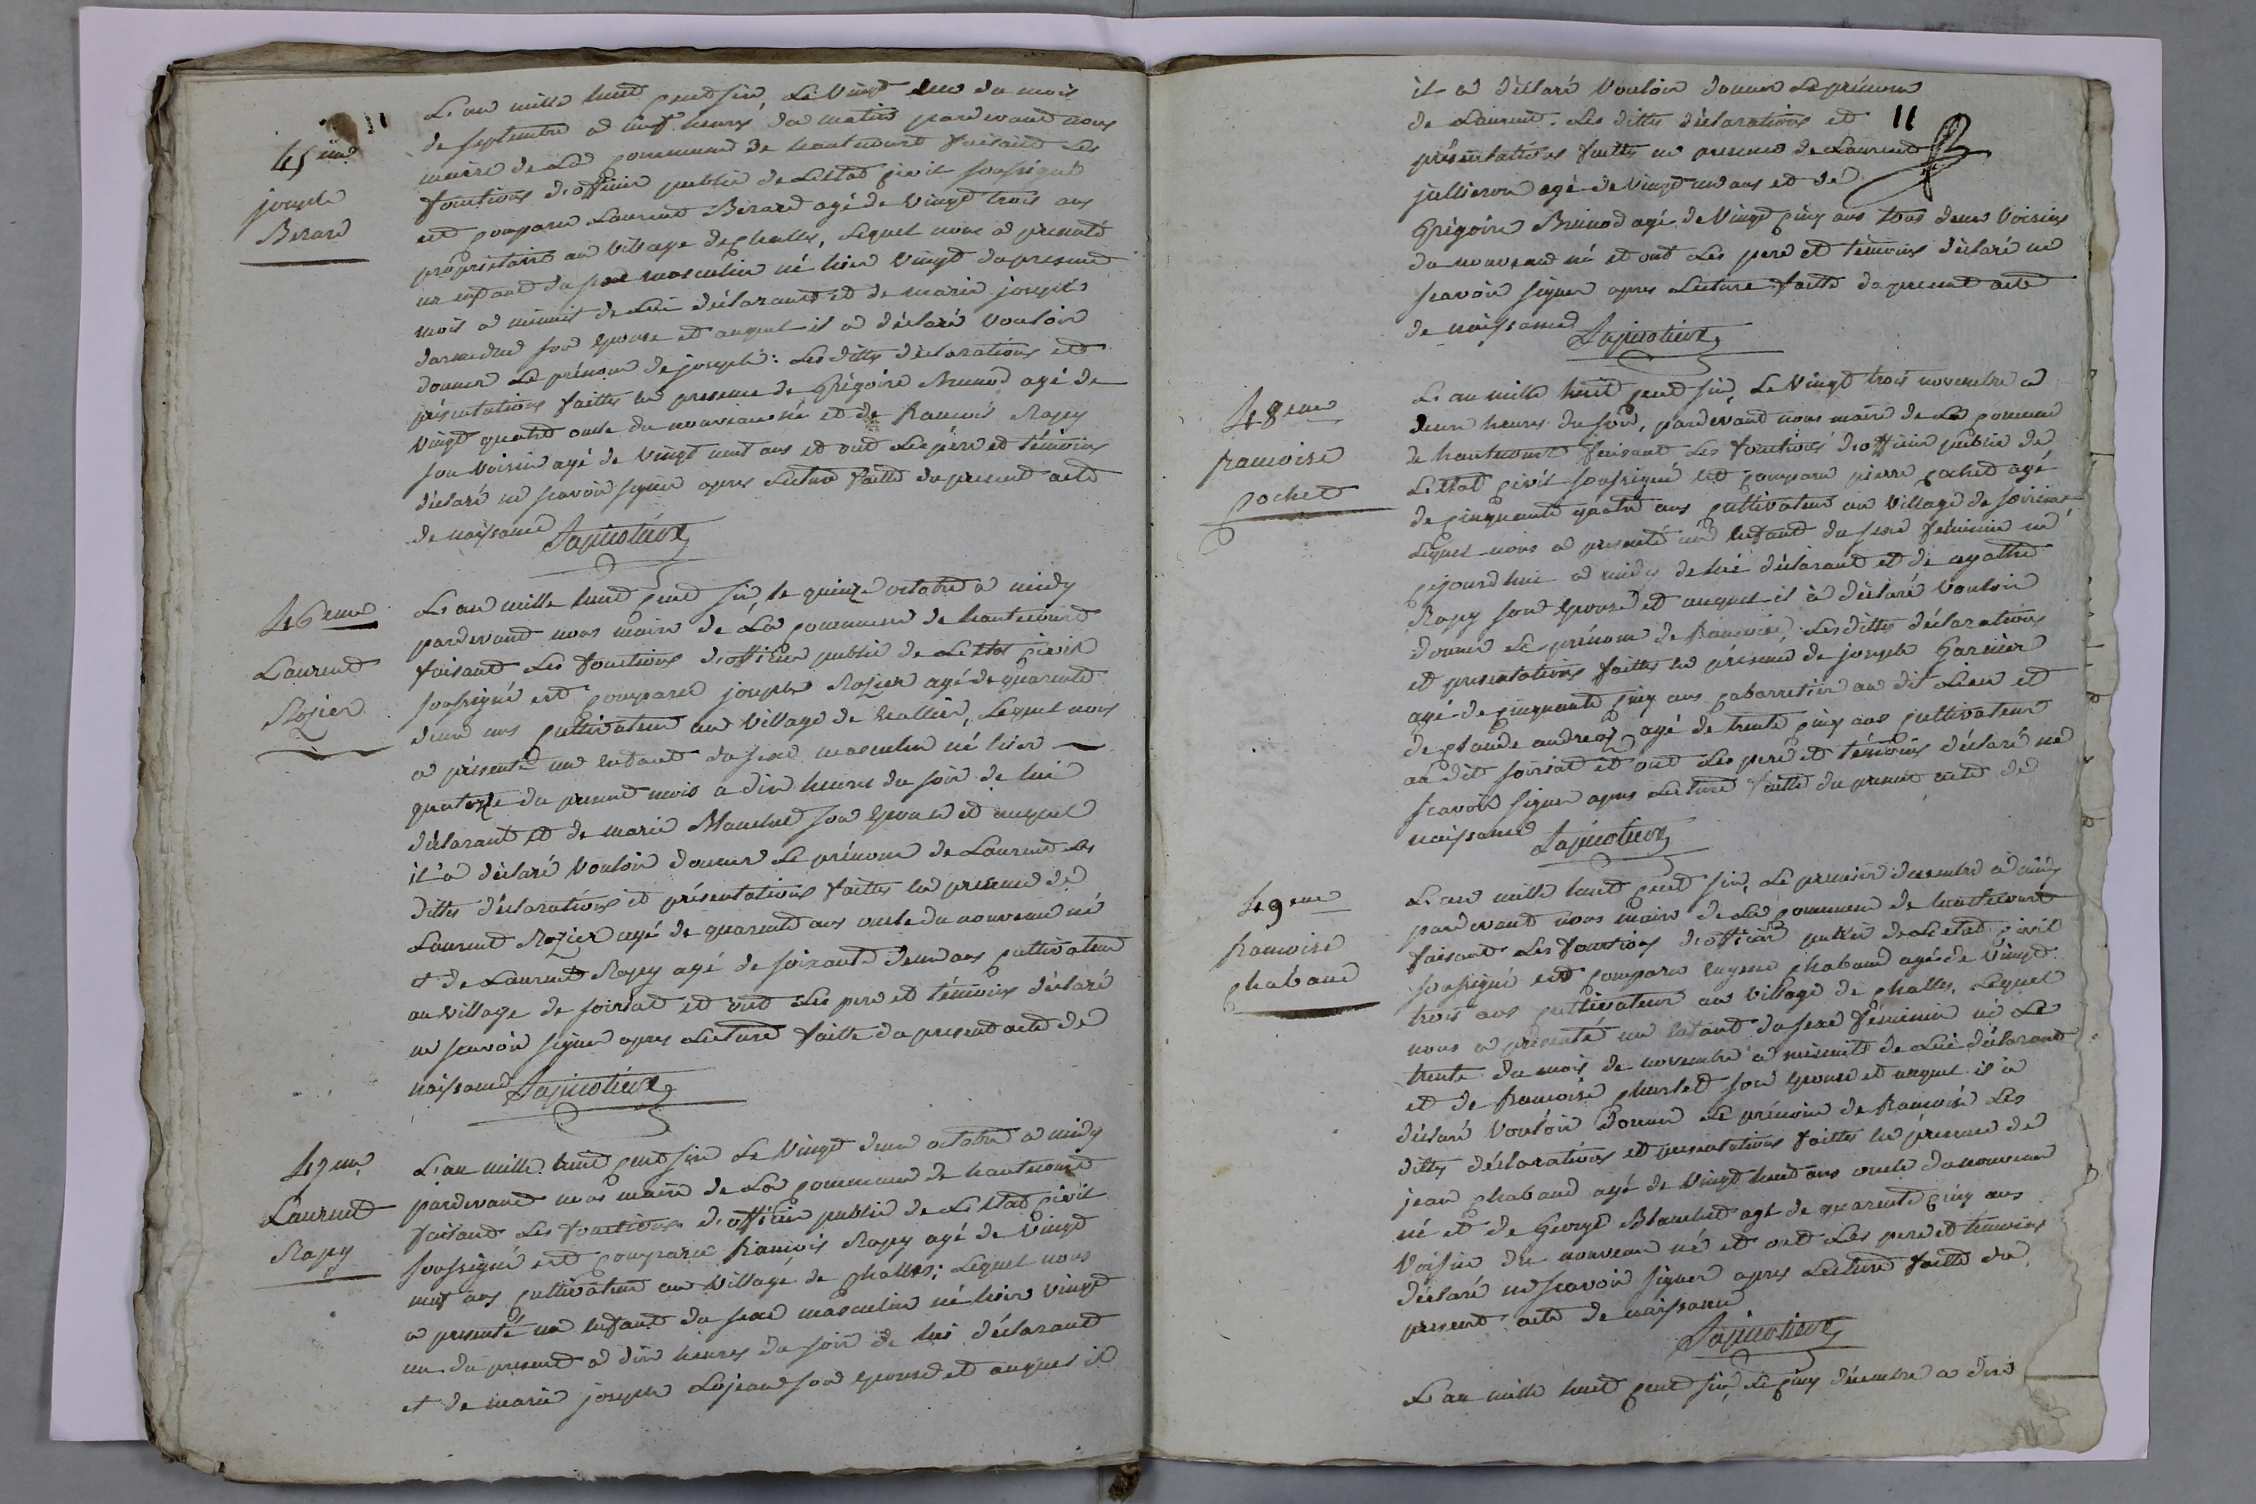 45eme
joseph
Berard
L'an mille huit cent six, Le vingt une du mois
de septembre a neuf heures du matin pardevant nous
maire de La commune de hautecourt faisant Les
fonctions d'officier public de L'Ettat civil soussigné
est comparu Laurent Berard agé de vingt trois ans
propriétaire au village de challes, Lequel nous a présenté
un enfant du sexe masculin né hier vingt du present
mois a minuit de Lui déclarant et de marie josephe
son epouse et auquel il a déclaré vouloir
donner Le prénom de joseph : Les dittes déclarations et
présentations faittes en presence de Grégoire Brunod agé de
vingt quatre oncle du nouveau né et de francois Rapy
son voisin agé de vingt neuf ans et ont Les père et témoins
déclaré ne scavoir signer apres Lecture faitte du present acte
de naissance Lapicotiere
46eme
Laurent
Rozier
L'an mille huit cent six le quinze octobre a midy
pardevant nous maire de La commune de hautecourt
faisant Les fonctions d'officier public de L'Ettat civil
soussigné est comparu joseph Rozier agé de quarente
deux ans cultivateur au village de, Lequel nous
a présenté un enfant du sexe masculin né hier
quatorze du present mois a dix heures du soir de lui
déclarant et de marie Blanchet son epouse et auquel
il a déclaré vouloir donner Le prénom de Laurent Les
dittes déclarations et présentations faittes en presence de
Laurent Rozier agé de quarente ans oncle du nouveau né
et de Laurent Rapy agé de soixante deux ans cultivateur
au village de soiriat et ont Les pere et témoins déclaré
ne scavoir signer apres Lecture faitte du present acte de
naissance Lapicotiere
47eme
Laurent
Rapy
L'an mille huit cent six Le vingt deux octobre a midy
pardevant nous maire de La commune de hautecourt
faisant Les fonctions d'officier public de L'Ettat civil
soussigné est comparu francois Rapy agé de vingt
neuf ans cultivateur au village de challes; Lequel nous
a presenté un enfant du sexe masculin né hier vingt
un du present a dix heures du soir de lui déclarant
et de marie joseph Lojean son epouse et auquel il
il a déclaré vouloir donner Le prénom
de Laurent. Les dittes déclarations et 11
présentations faittes en presence de Laurent
jullieron agé de vingt un ans et de
Grégoire Brunod agé de vingt cinq ans tous deux voisins
du nouveau né et ont Les pere et témoins déclaré ne
scavoir signer apres Lecture faitte du present acte
de naissance Lapicotiere
48eme
francoise
cochet
L'an mille huit cent six, Le vingt trois novembre a
deux heures du soir, pardevant nous maire de La commune
de hautecourt faisant Les fonctions d'officier public de
L'Ettat civil soussigné est comparu pierre cochet agé
de cinquante quatre ans cultivateur au village de soiriat
Lequel nous a presenté un enfant du sexe féminin né
cejourdhui a midy de lui déclarant et de agathe
Rapy son epouse et auquel il à déclaré vouloir
donner Le prénom de francoise, Les dittes déclarations
et presentations faittes en présence de joseph Garnier
agé de cinquante cinq ans cabarretier au dit Lieu et
de claude andreaz agé de trente cinq ans cultivateur
au dit soiriat et ont Les pere et témoins déclaré ne
scavoir signer apres Lecture faitte du present acte de
naissance Lapicotiere
49eme
francoise
chabaud
L'an mille huit cent six, Le premier decembre a midy
pardevant nous maire de La commune de hautecourt
faisant Les fonctions d'officier public de L'etat civil
soussigné est comparu eugene chabaud agé de vingt
trois ans cultivateur au village de challes, Lequel
nous a présenté un enfant du sexe féminin né Le
trente du mois de novembre a minuit de Lui déclarant
et de francoise charlet son epouse et auquel il a
déclaré vouloir donner Le prénom de francoise Les
dittes déclarations et presentations faittes en presence de
jean chabaud agé de vingt huit ans oncle du nouveau
né et de George Blanchet agé de quarente cinq ans
voisin du nouveau né et ont Les pere et temoins
déclaré ne scavoir signer apres Lecture faitte du
present acte de naissance
Lapicotiere
L'an mille huit cent six, Le cinq décembre a dix